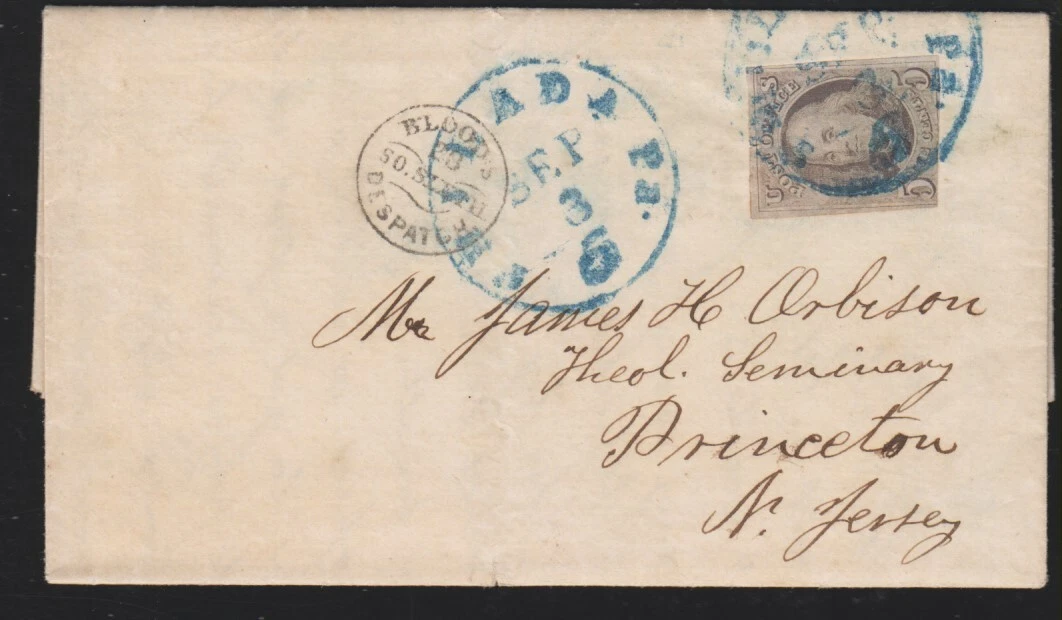 BLOOD'S
28
SO. SIXTH
DESPATCH
ADA Pa.
SEP
3
5
POST OFFICE
5
5
Mr James H Orbison
Theol. Seminary
Princeton
N. Jersey